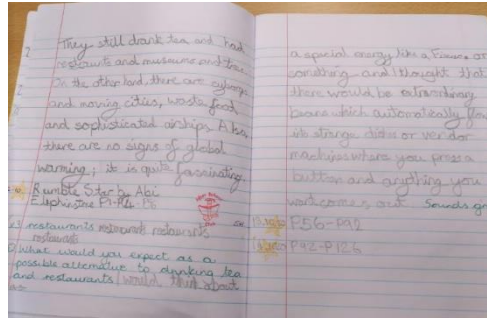 They still drank tea and had
restaurants and museums and trees.
On the other hand, there are cyborgs
and moving cities, waste food
and sophisticated airships. Also,
there are no signs of global
warming; it is quite fascinating.
Rumble Star by Abi
Elephinstone P1-P
restaurants restaurants restaurants
restaurants
What would you expect as a
possible alternative to drinking tea
and restaurants I would think about
a special energy like a or
something and I thought that
there would be extraordinary
beans which automatically
into strange dishes or vendor
machines where you press a
button and anything you
want comes out. Sounds
P56-P92
P92-P126